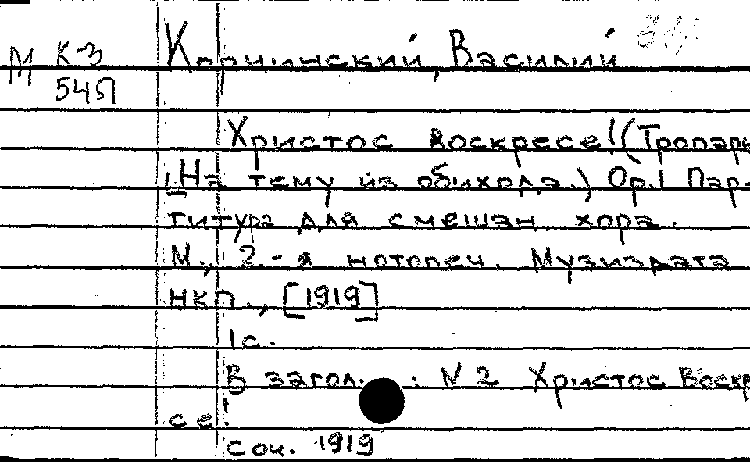 М К-3 Василий
545П
Христос воскресе! (Тропарь
[На тему из обихода.) Ор.1 Пар-
титура для смешан. хора.
М., 2-я нотопеч. Музиздата
НКП., [1919]
1с.
В загол. : N 2 Христос Воскр
се!
Соч. 1919